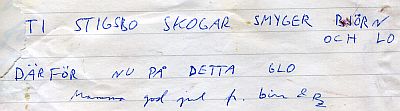 TI STIGSBO SKOGAR SMYGER BJÖRN
OCH LO
DÄRFÖR NU PÅ DETTA GLO
Mamma god jul fr.